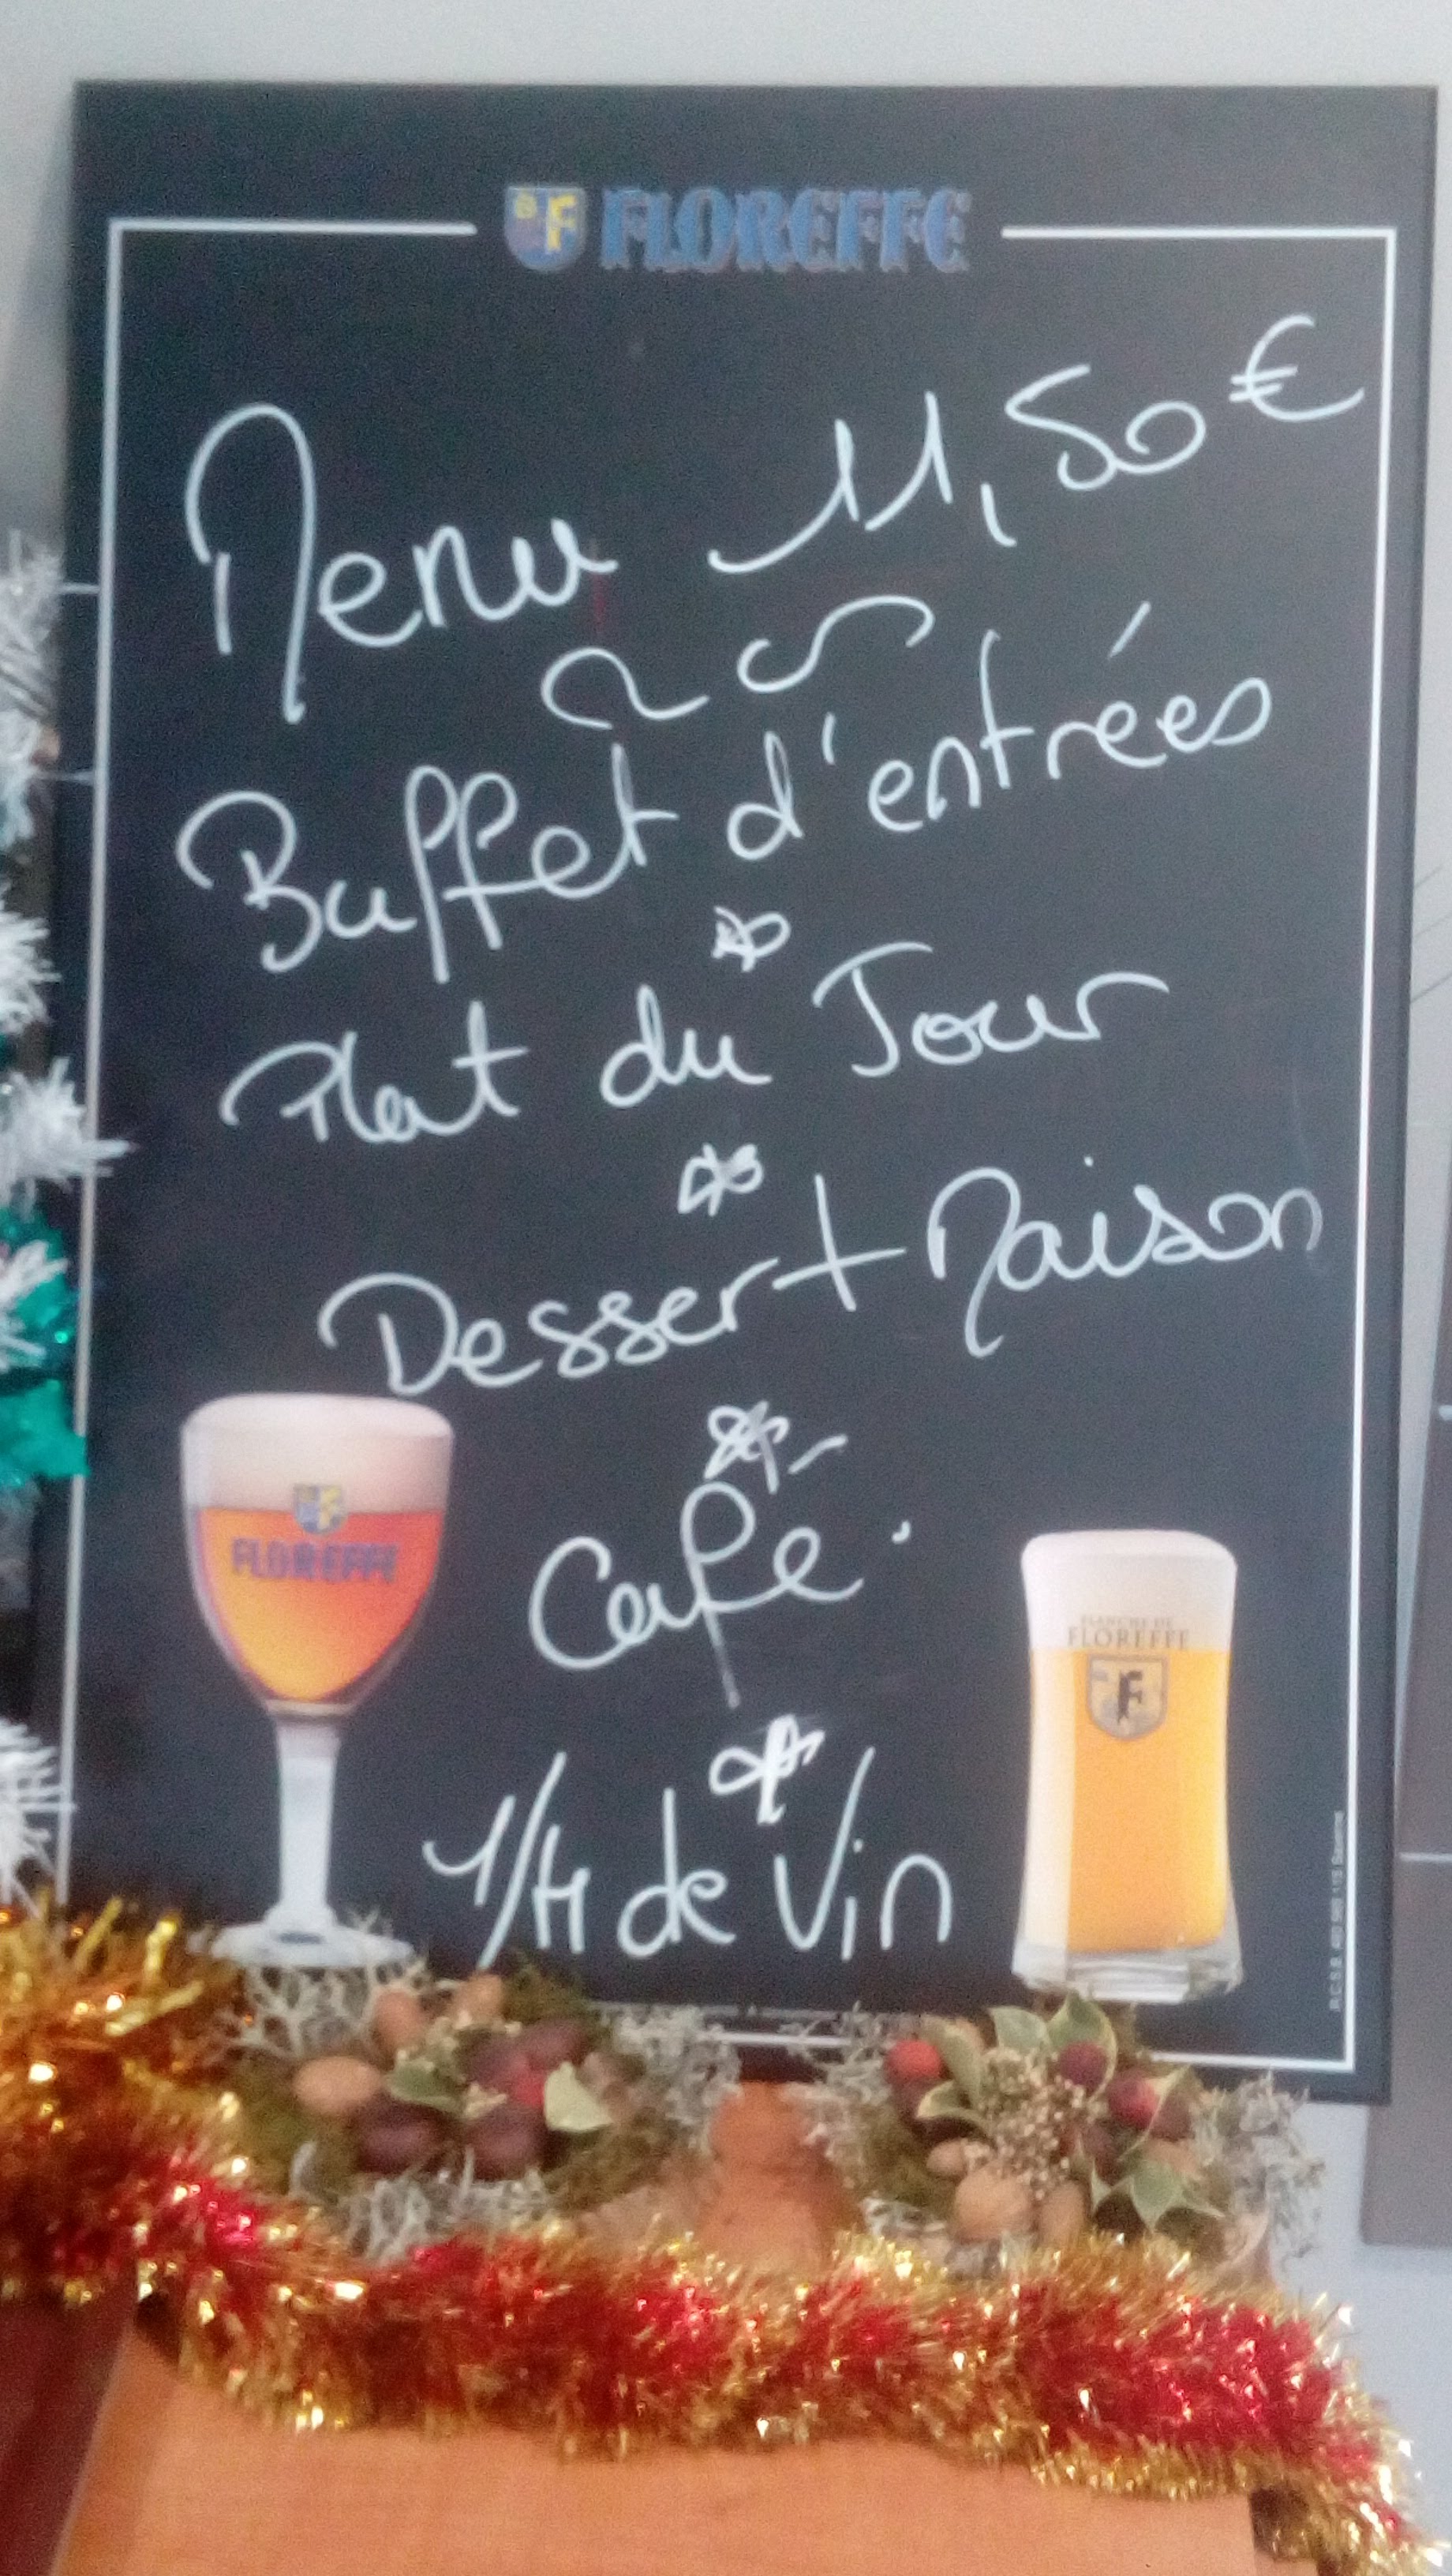 FLOREFFE
Menu 11,50€
Buffet d'entrées
Plat du Jour
Dessert Maison
Café
1/4 de Vin
FLOREFFE
BLANCHE DE
FLOREFFE
F